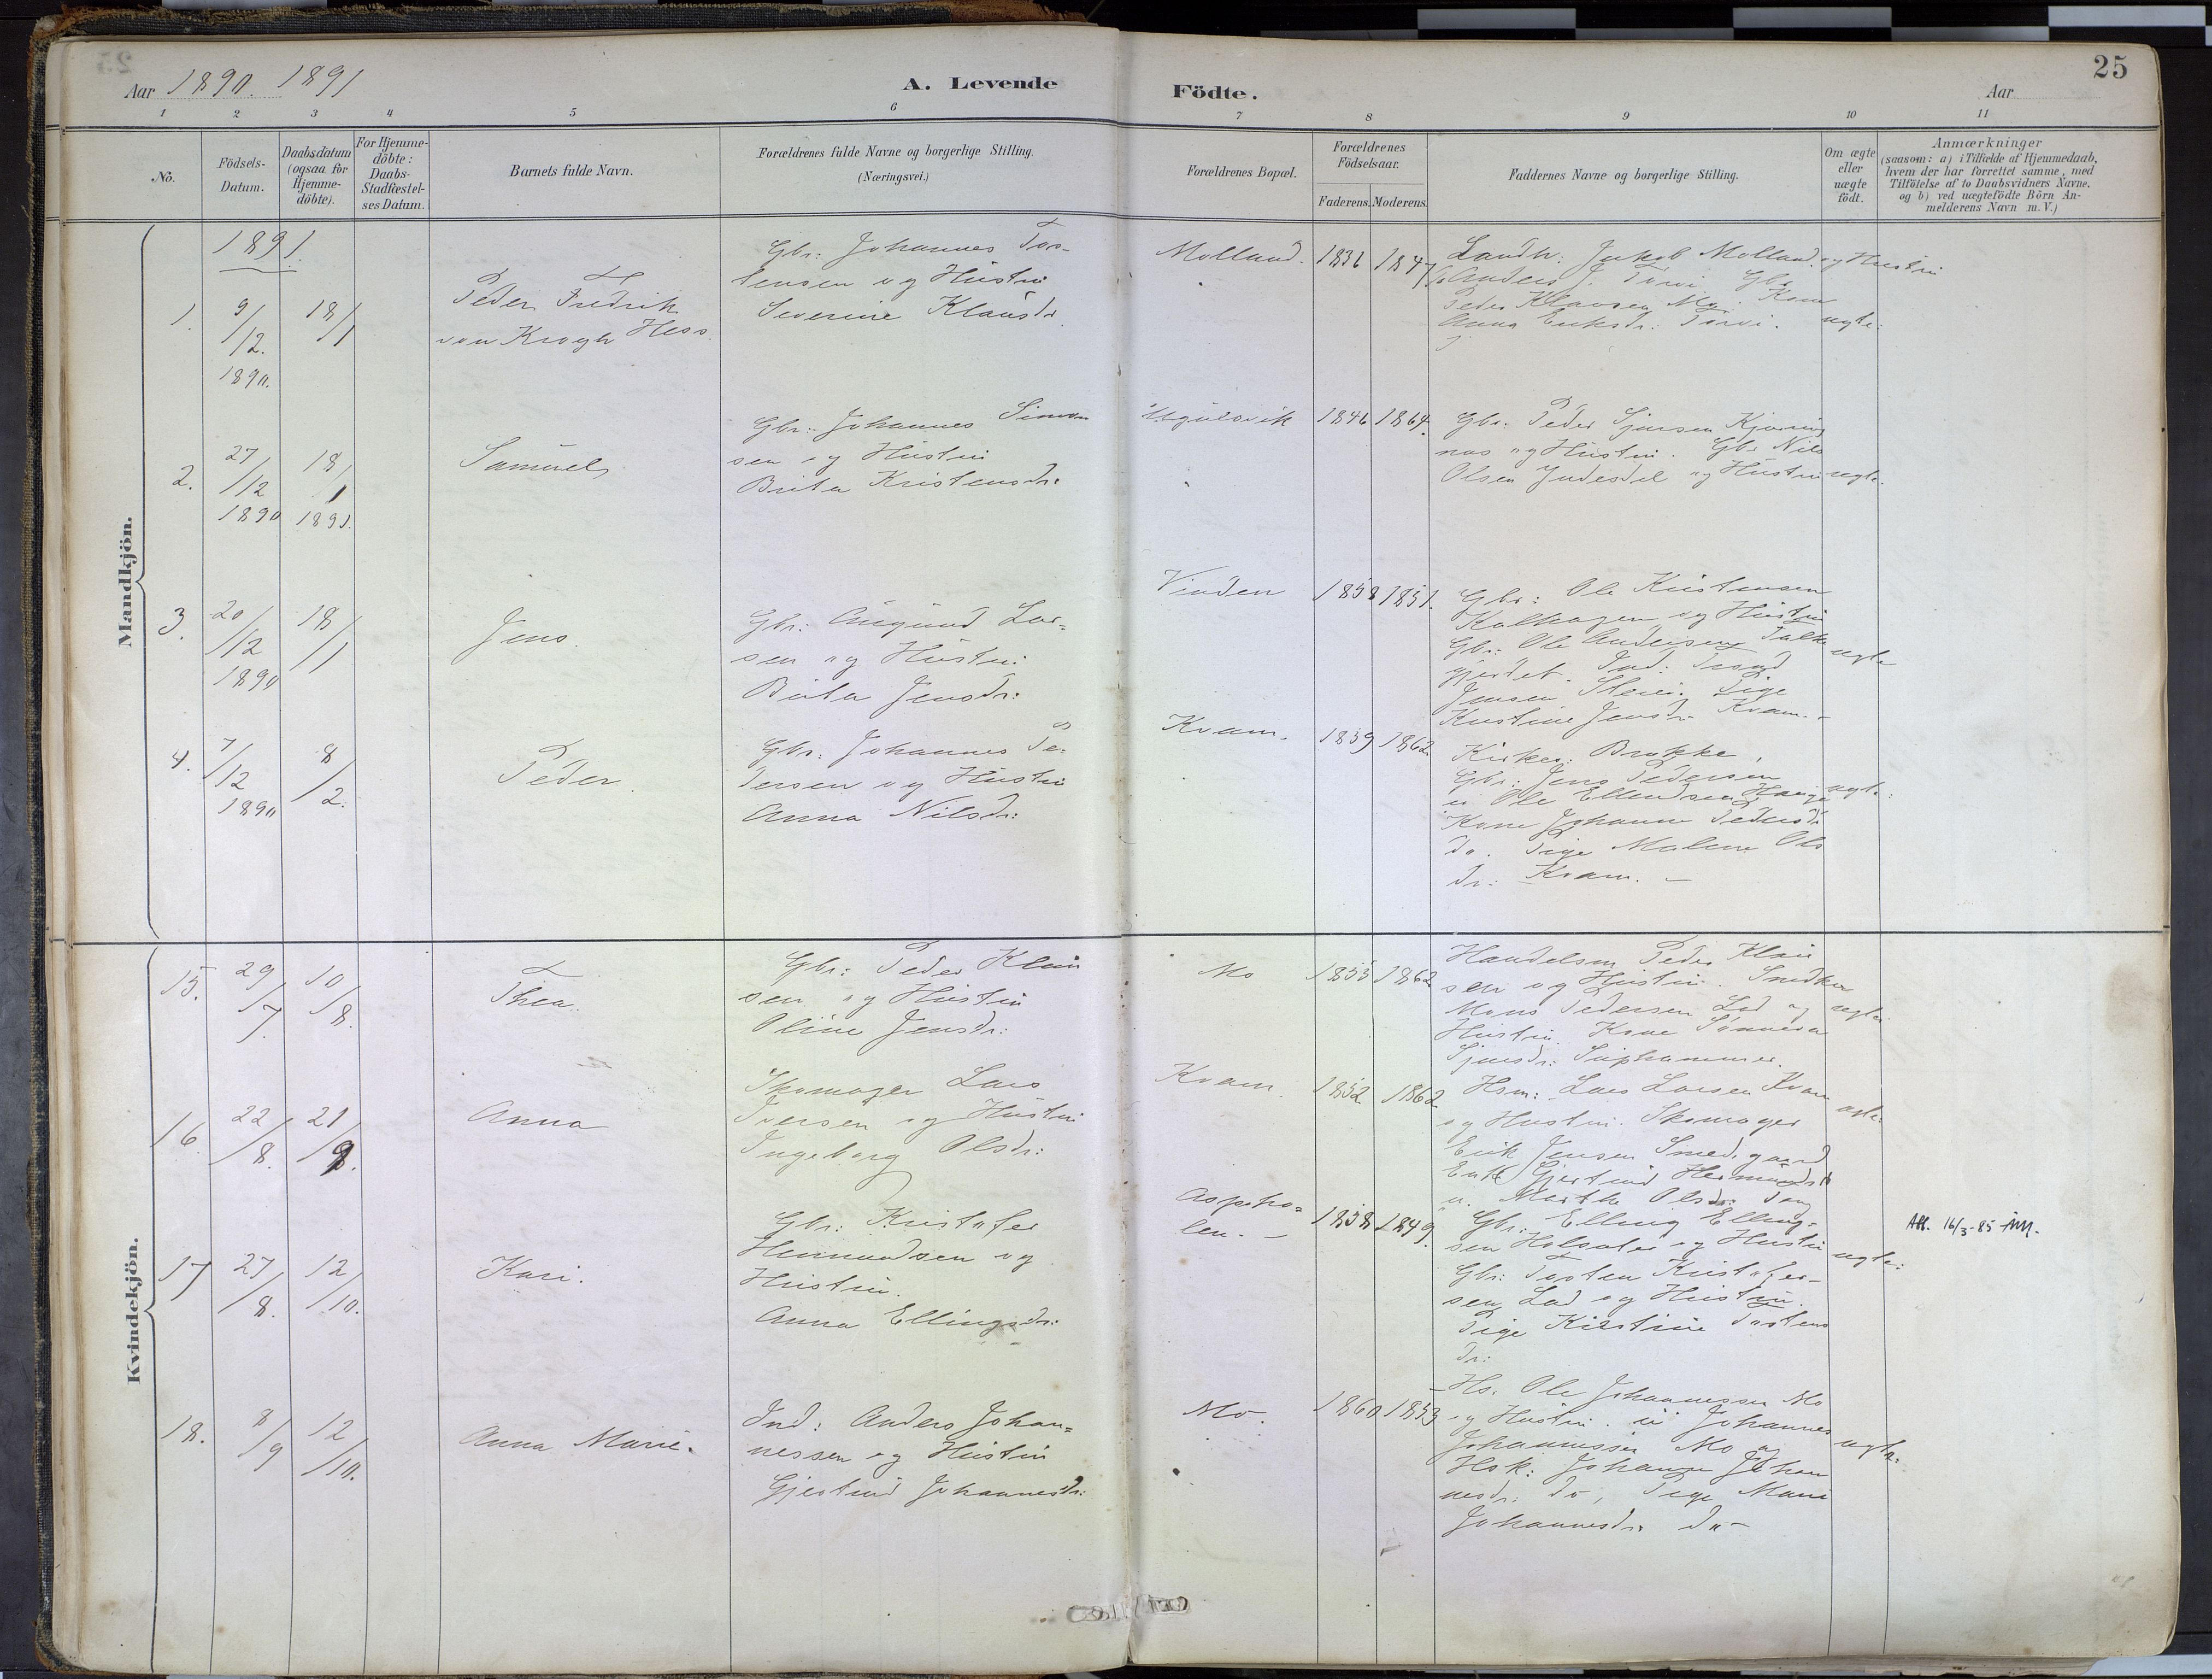 25
Aar 1890. 1891
A. Levende
Födte.
Aar
1 2 3 4 5 6 7 8 9 10 11
No.
Födsels-
Datum.
Daabsdatum
(ogsaa for
Hjemme-
döbte).
For Hjemme-
döbte:
Daabs-
Stadfæstel-
ses Datum.
Barnets fulde Navn.
Forældrenes fulde Navne og borgerlige Stilling.
(Næringsvei.)
Forældrenes Bopæl.
Forældrenes
Födselsaar.
Faderens. Moderens.
Faddernes Navne og borgerlige Stilling.
Om ægte
eller
uægte
födt.
Anmærkninger
(saasom: a) i Tilfælde af Hjemmedaab,
hvem der har forrettet samme, med
Tilföielse af to Daabsvidners Navne,
og b) ved uægtefödte Börn An-
melderens Navn m. V.)
Mandkjön.
1891.
1.
9/12.
1890.
18/1
Peder Fredrik
von Krogh Hess.
Gbr: Johannes
og Hustru
Severine Klausdr.
Molland.
1847
Landh: Jakob Molland og Hustru
Anders J.
Peder Klausen Mo. Kone
Anna Eriksdr:
ægte:
2.
27/12
1890
18/1
1891.
Samuel
Gbr: Johannes Simon
sen og Hustru
Brita Kristensdr:
1846 1864.
Gbr. Peder Sjursen Kjøring
nas og Hustru. Gbr Nils
Olsen Indesdel og Hustru
ægte.
3.
20/12
1890
18/1
Jens.
Gbr: Amund Lar=
sen og Hustru
Brita Jensdr:
Vinden
1858 1851.
Gbr: Ole Kristensen
og Hustru
Gbr: Ole Andersen
gjerdet.
Jensen Pige
Kristine Jensdr. Kvam. -
ægte
4.
7/12
1890
8/2.
Peder.
Gbr: Johannes Pe-
dersen og Hustru
Anna Nilsdr:
Kvam.
1859 1862
Kirkes: Brokke,
Gbr: Jens Pedersen
Ole Ellendsen Hauge
Kone Johanne Pedersdr
do. Pige Malene Ols
dr: Kvam. -
ægte:
Kvindekjön.
15.
29/7.
10/8.
Thea.
Gbr: Peder Klau
sen og Hustru
Oline Jensdr:
Mo
1855 1862
Handelsm Peder Klau
sen og Hustru. Snedker
Mons Pedersen Lad og
Hustru. Kone Sønneva
Sjursdr:
ægte
16.
22/8.
21/9.
Anna
Skomager Lars
Iversen og Hustru
Ingeborg Olsdr:
Kvam.
1852 1862
Hsm: Lars Larsen Kvam
og Hustru. Skomager
Erik Jensen Smedegaard
Enke Gjertrud Hermundsdr
Marthe Olsdr:
ægte:
17
27/8.
12/10.
Kari.
Gbr: Kristofer
Hermundsen og
Hustru.
Anna Ellingsdr:
Aspeho=
len. -
1858 1849.
Gbr: Elling Elling=
sen Holsæter og Hustru
Gbr: Tosten Kristofer-
sen Lad og Hustru.
Pige Kirstine Tostens
dr:
ægte:
Att. 16/3-85
18.
8/9
12/10.
Anna Marie.
Ind: Anders Johan=
nessen og Hustru
Gjertrud Johannesdr:
Mo.
1860 1853
Hs. Ole Johannessen Mo
og Hustru. Johannes
Johannessen Mo og
Hsk: Johanne Johan
nesdr: do, Pige Marie
Johannesdr: do -
ægte: